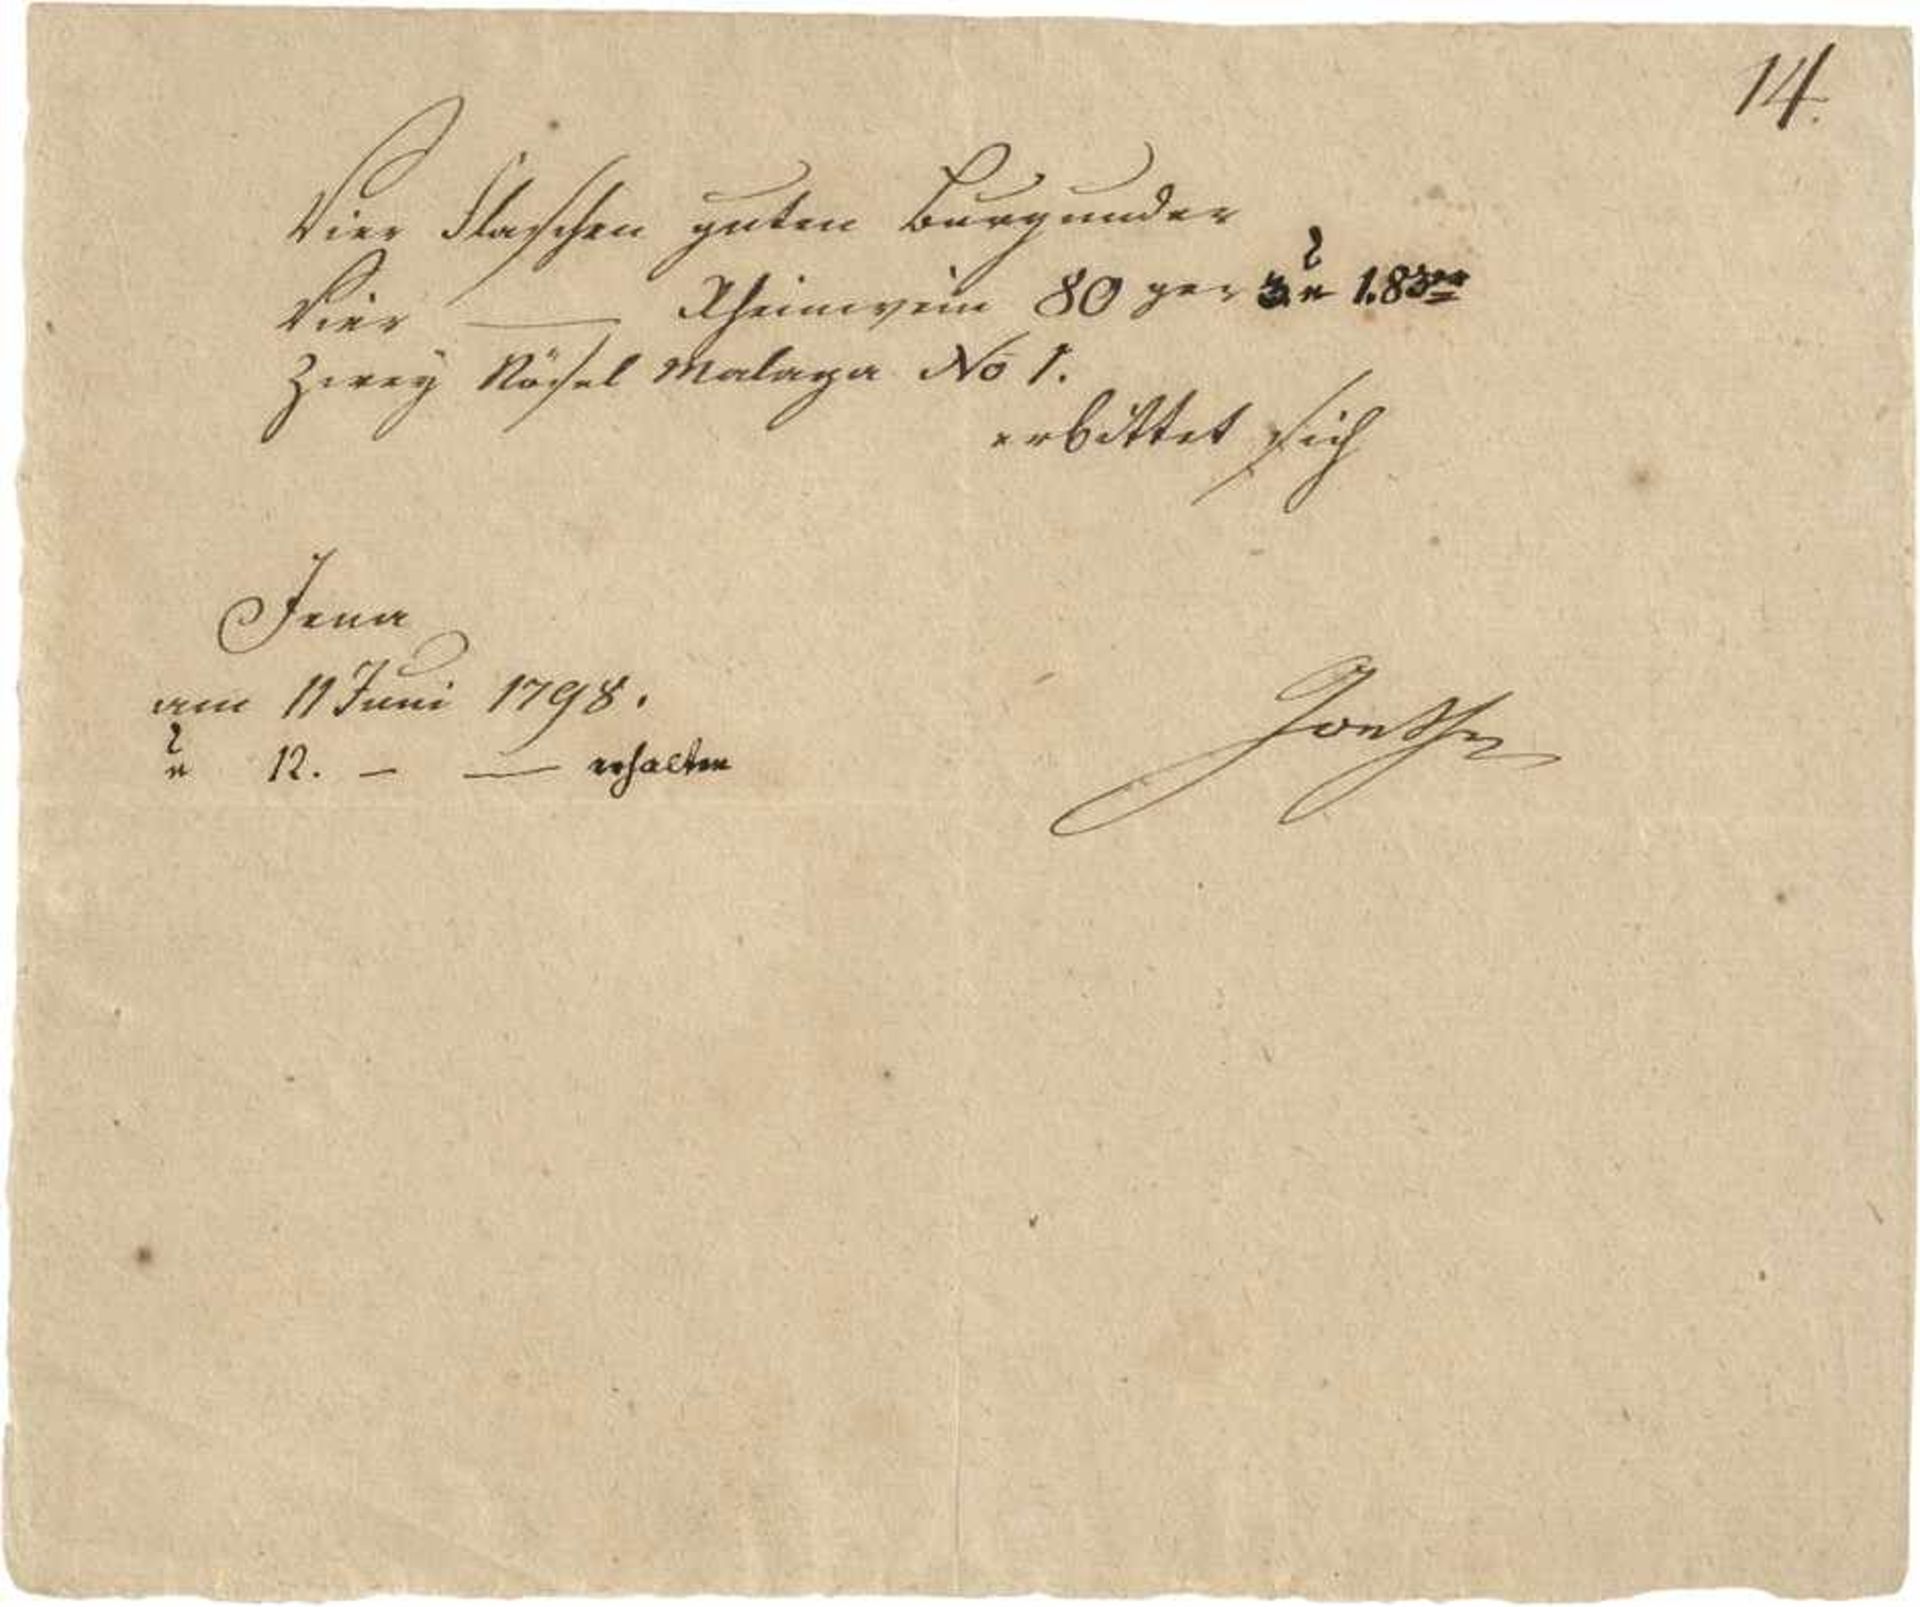 14.
Vier Flaschen guten Burgunder
Vier — Rheinwein 80 ger
Zwey Nösel Malaga No 1.
erbittet sich
Jena
am 11 Juni 1798.
12. — — erhalten
Goethe